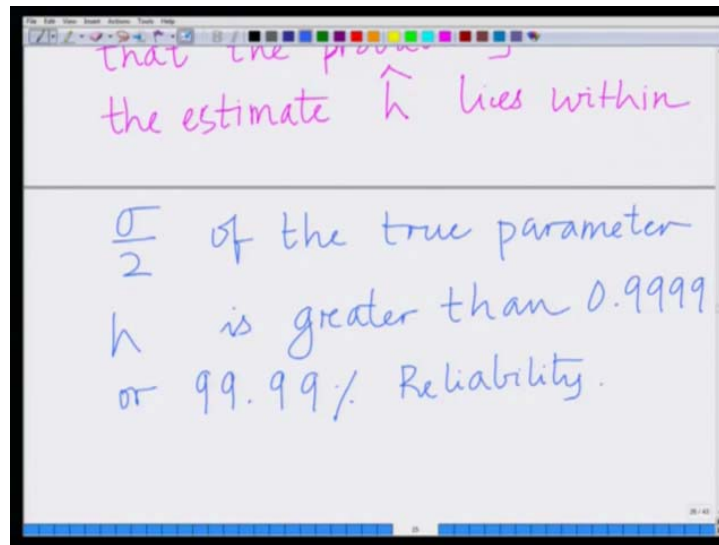 File Edit View Insert Actions Tools Help
that the
the estimate ĥ lies within
σ/2 of the true parameter
h is greater than 0.9999
or 99.99% Reliability.
25